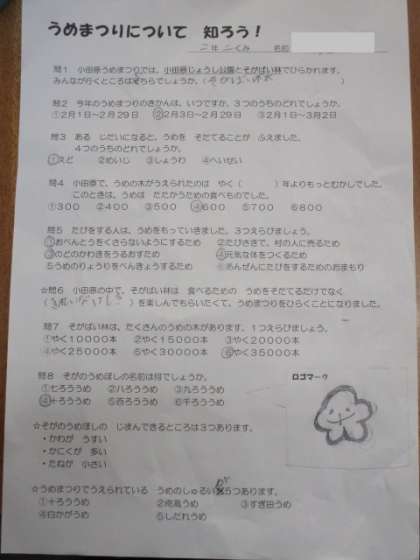 うめまつりについて 知ろう！
二年 二くみ 名前
問1 小田原うめまつりでは、小田原じょうし公園とそがばい林でひらかれます。
みんなが行くところはどちらでしょうか。（そがばい林）
問2 今年のうめまつりのきかんは、いつですか。3つのうちのどれでしょうか。
①2月1日〜2月29日 ②2月3日〜2月29日 ③2月1日〜3月2日
問3 ある じだいになると、うめを そだてることが ふえました。
4つのうちのどれでしょうか。
①えど ②めいじ ③しょうわ ④へいせい
問4 小田原で、うめの木がうえられたのは やく（ ）年よりもっとむかしでした。
このときは、うめは たたかうための食べものでした。
①300 ②400 ③500 ④600 ⑤700 ⑥800
問5 たびをする人は、うめをもっていきました。3つえらびましょう。
①おべんとうをくさらないようにするため ②たびさきで、村の人に売るため
③のどのかわきをうるおすため ④元気な体をつくるため
⑤うめのりょうりをべんきょうするため ⑥あんぜんにたびをするためのおまもり
☆問6 小田原の中で、そがばい林は 食べるための うめをそだてるだけでなく
（きれいなけしき）を楽しんでもらいたくて、うめまつりをひらくことになりました。
問7 そがばい林は、たくさんのうめの木があります。1つえらびましょう。
①やく10000本 ②やく15000本 ③やく20000本
④やく25000本 ⑤やく30000本 ⑥やく35000本
問8 そがのうめぼしの名前は何でしょうか。
①七ろううめ ②八ろううめ ③九ろううめ
④十ろううめ ⑤百ろううめ ⑥千ろううめ
ロゴマーク
☆そがのうめぼしの じまんできるところは3つあります。
・かわが うすい
・かにくが 多い
・たねが 小さい
☆うめまつりでうえられている うめのしゅるいが5つあります。
①十ろううめ ②南高うめ ③すぎ田うめ
④白かがうめ ⑤しだれうめ